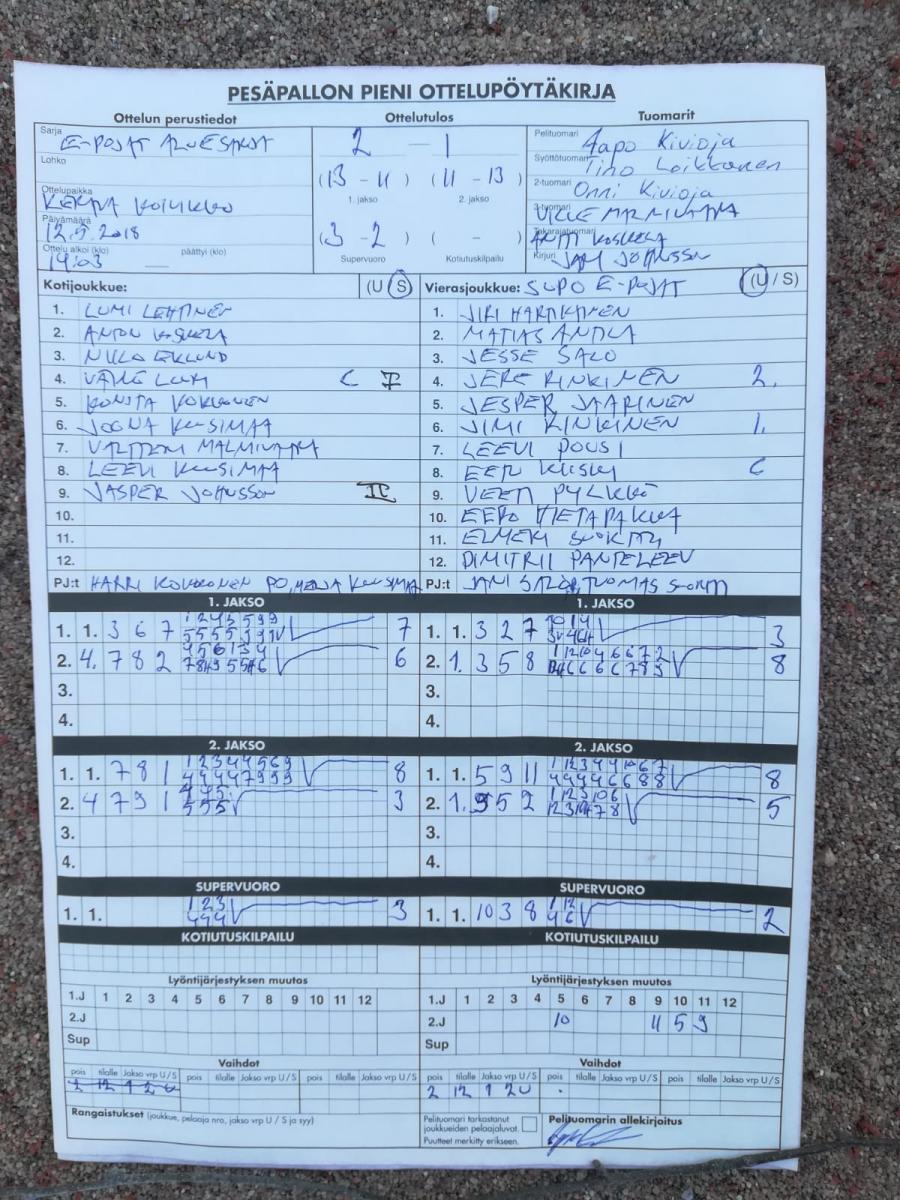 PESÄPALLON PIENI OTTELUPÖYTÄKIRJA
Ottelun perustiedot Ottelutulos Tuomarit
Sarja E-POJAT ALUESARJA
Lohko
Ottelupaikka KERAVA KOIVIKKO
Päivämäärä 12.9.2018
Ottelu alkoi (klo) 19:03 päättyi (klo)
2 - 1
(13 - 11) (11 - 13)
1. jakso 2. jakso
(3 - 2) ( - )
Supervuoro Kotiutuskilpailu
Pelituomari Aapo Kivioja
Syöttötuomari Tino Loikkanen
2-tuomari Onni Kivioja
3-tuomari VILLE MALMIVAARA
Takarajatuomari ANTTI KOSKELA
Kirjuri JANI JOHNSSON
Kotijoukkue: (U / S)
1. LUMI LEHTINEN
2. ANTON KOSKELA
3. NIILO EKLUND
4. VÄINÖ LUMI C I
5. KONSTA KOKKONEN
6. JOONA KUUSIMAA
7. VALTTERI MALMIVAARA
8. LEEVI KUUSIMAA
9. JASPER JOHNSSON II
10.
11.
12.
PJ:t HARRI KOKKONEN PO, KUUSIMAA
Vierasjoukkue: SUPO E-POJAT (U / S)
1. JIRI HARTIKAINEN
2. MATIAS ANTILA
3. JESSE SALO
4. JERE RINKINEN 2.
5. JESPER JAARINEN
6. JIMI RINKINEN 1.
7. LEEVI POUSI
8. EETU KIISKI C
9. VEETI PYLKKÖ
10. EEPO HIETAPAKKA
11. ELMERI
12. DIMITRII PANTELEEV
PJ:t JANI SALO, TUOMAS STORM
1. JAKSO 1. JAKSO
1. 1. 3 6 7 7
2. 4. 7 8 2 6
3.
4.
1. 1. 3 2 7 3
2. 1. 3 5 8 8
3.
4.
2. JAKSO 2. JAKSO
1. 1. 7 8 1 8
2. 4 7 9 1 3
3.
4.
1. 1. 5 9 11 8
2. 1. 9 5 2 5
3.
4.
SUPERVUORO SUPERVUORO
1. 1. 1 2 3 3
4 4 4
1. 1. 10 3 8 1 12 2
4 6
KOTIUTUSKILPAILU KOTIUTUSKILPAILU
Lyöntijärjestyksen muutos
1.J 1 2 3 4 5 6 7 8 9 10 11 12
2.J
Sup
Lyöntijärjestyksen muutos
1.J 1 2 3 4 5 6 7 8 9 10 11 12
2.J 10 11 5 9
Sup
Vaihdot
pois tilalle Jakso vrp U/S pois tilalle Jakso vrp U/S pois tilalle Jakso vrp U/S
2 12 1 2 U
Vaihdot
pois tilalle Jakso vrp U/S pois tilalle Jakso vrp U/S pois tilalle Jakso vrp U/S
2 12 1 2U
Rangaistukset (joukkue, pelaaja nro, jakso vrp U / S ja syy)
Pelituomari tarkastanut joukkueiden pelaajaluvat.
Puutteet merkitty erikseen.
Pelituomarin allekirjoitus